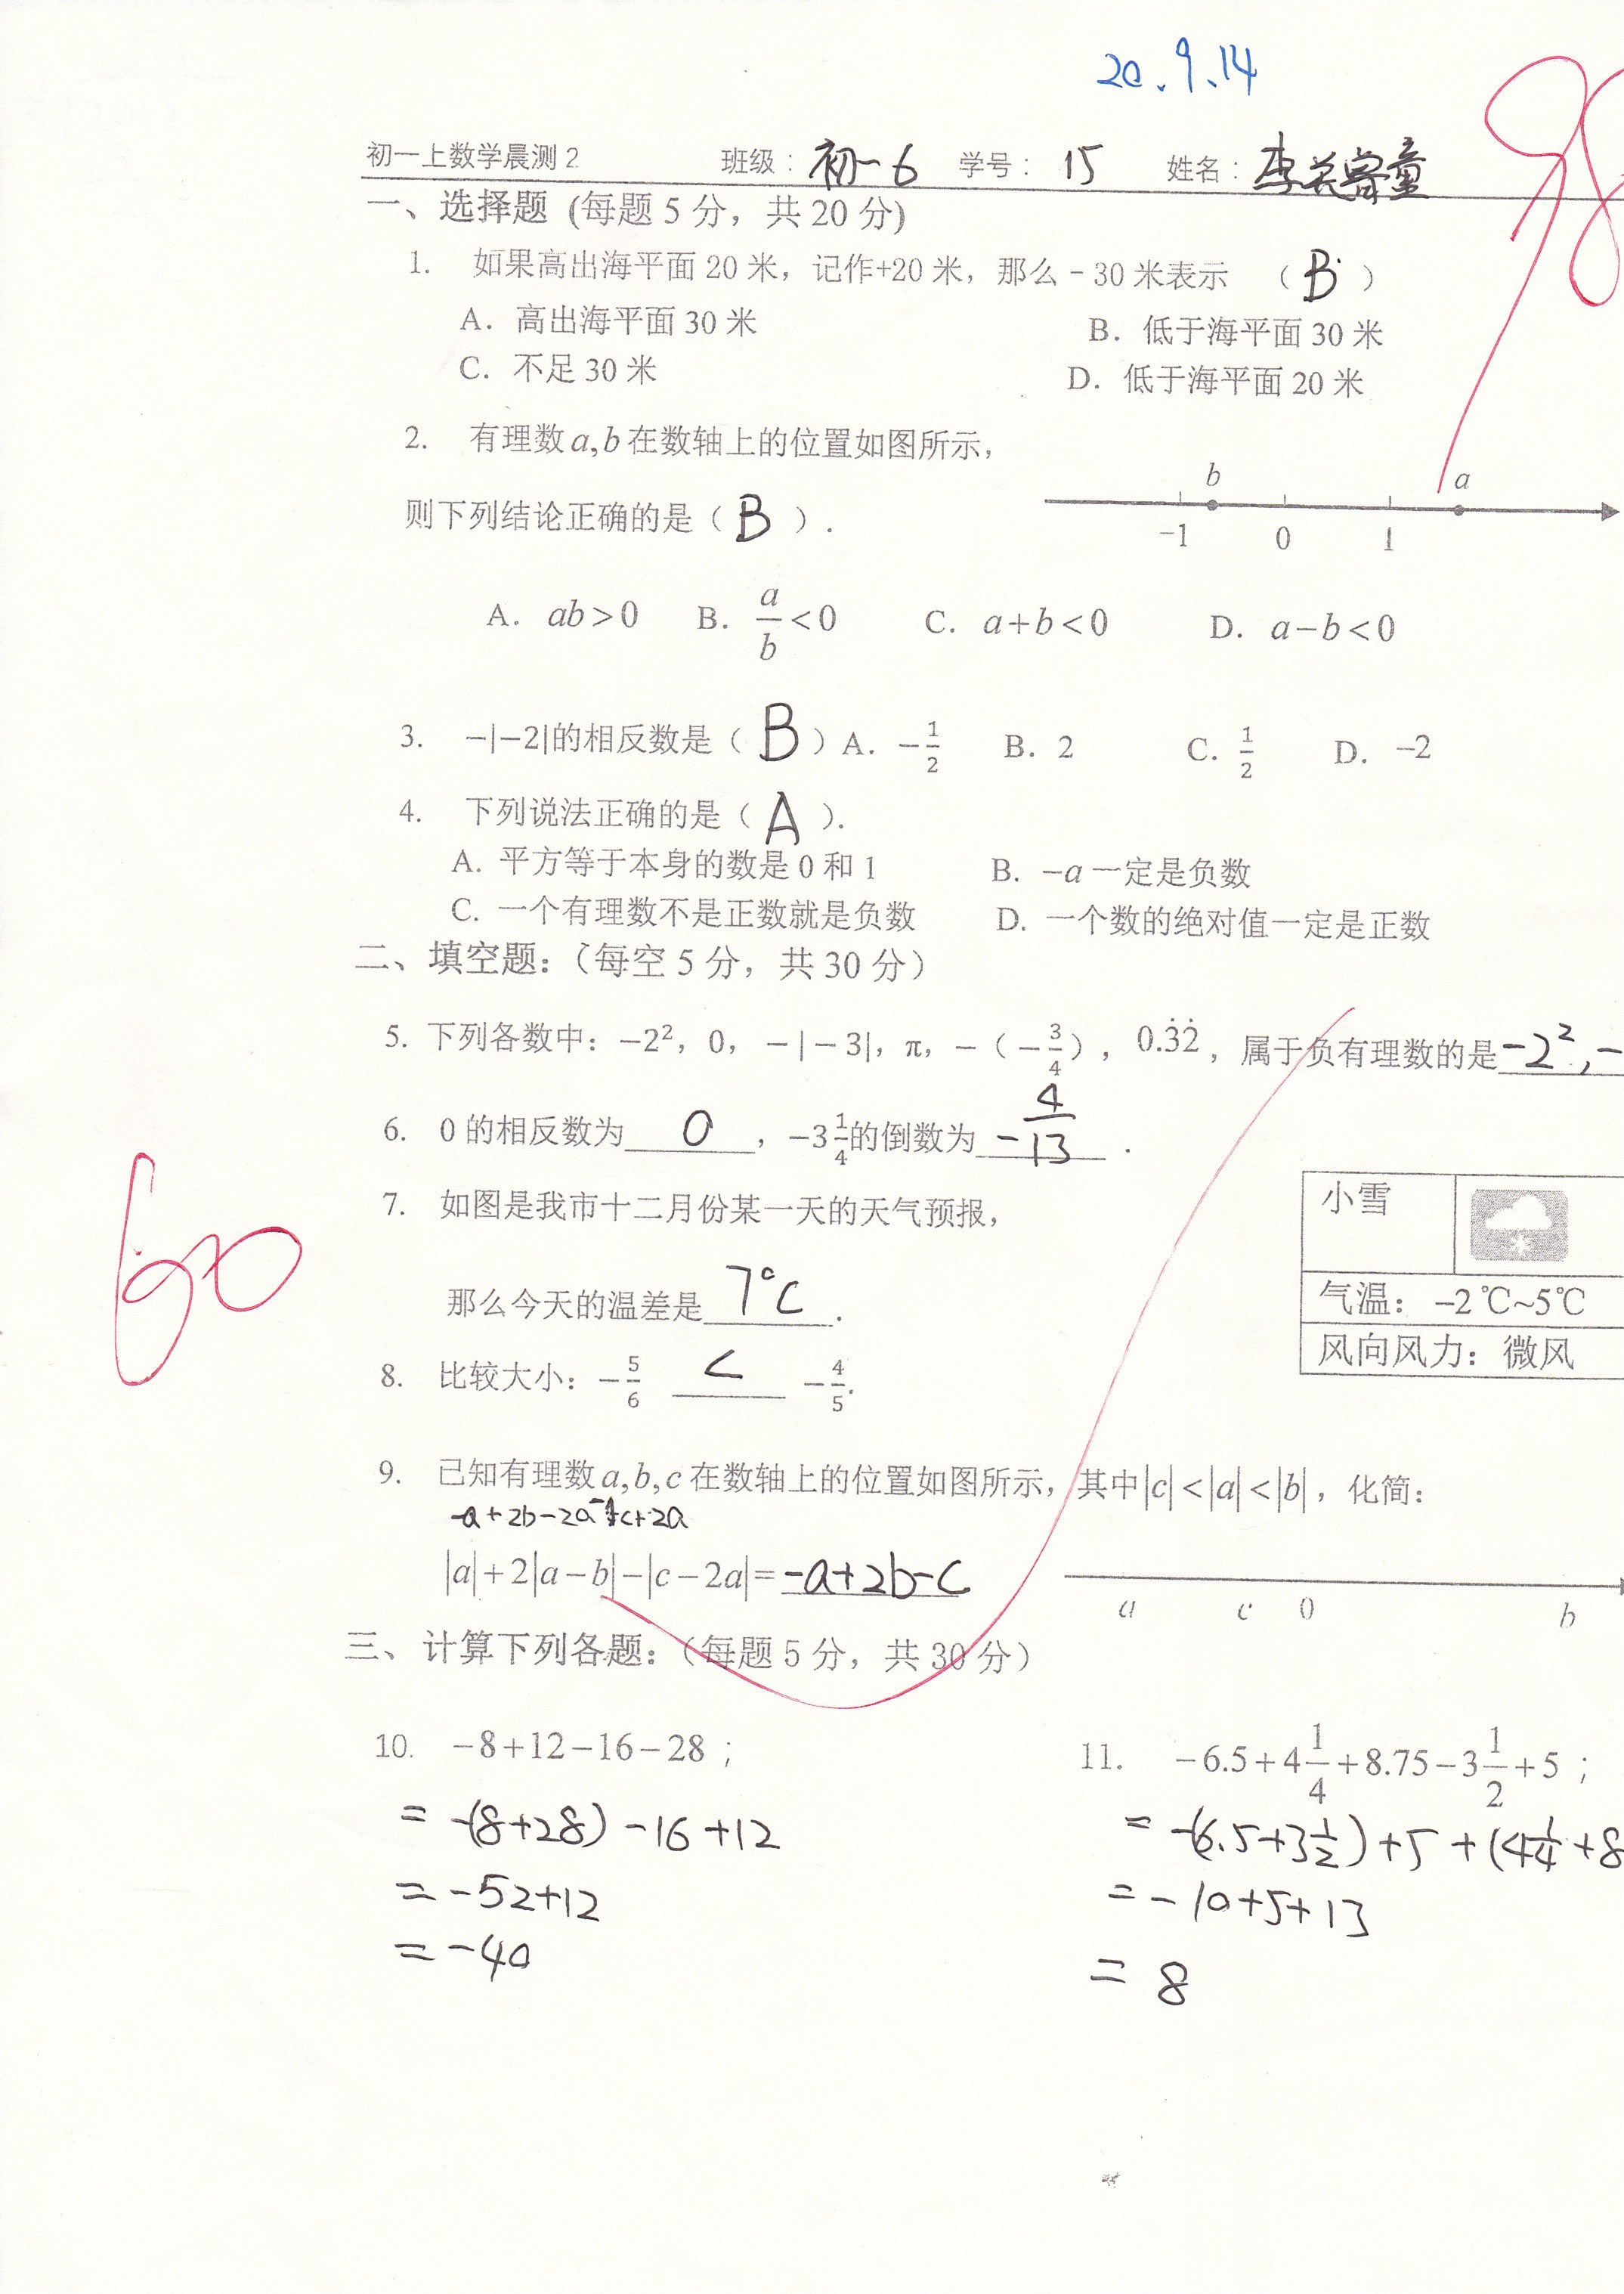 20.9.14
98
初一上数学晨测2 班级: 初一6 学号: 15 姓名: 李 睿童
一、选择题 (每题5分,共20分)
1. 如果高出海平面20米,记作+20米,那么-30米表示 (B)
A. 高出海平面30米 B. 低于海平面30米
C. 不足30米 D. 低于海平面20米
2. 有理数a,b在数轴上的位置如图所示,
b a
则下列结论正确的是(B).
-1 0 1
A. ab>0 B. a/b<0 C. a+b<0 D. a-b<0
3. -|-2|的相反数是(B)A. -1/2 B. 2 C. 1/2 D. -2
4. 下列说法正确的是(A).
A. 平方等于本身的数是0和1 B. -a一定是负数
C. 一个有理数不是正数就是负数 D. 一个数的绝对值一定是正数
二、填空题:(每空5分,共30分)
5. 下列各数中:-2²,0,-|-3|,π,-(-3/4),0.3̇2̇,属于负有理数的是-2²,-
6. 0的相反数为 0 ,-3 1/4的倒数为 -4/13 .
60
7. 如图是我市十二月份某一天的天气预报,
小雪
那么今天的温差是 7°C .
气温: -2℃~5℃
风向风力: 微风
8. 比较大小:-5/6 < -4/5.
9. 已知有理数a,b,c在数轴上的位置如图所示,其中|c|<|a|<|b|,化简:
-a+2b-2a-c+2a
|a|+2|a-b|-|c-2a|=-a+2b-c
a c 0 b
三、计算下列各题:(每题5分,共30分)
10. -8+12-16-28; 11. -6.5+4 1/4+8.75-3 1/2+5;
=-(8+28)-16+12 =-(6.5+3 1/2)+5+(4 1/4+8
=-52+12 =-10+5+13
=-40 =8